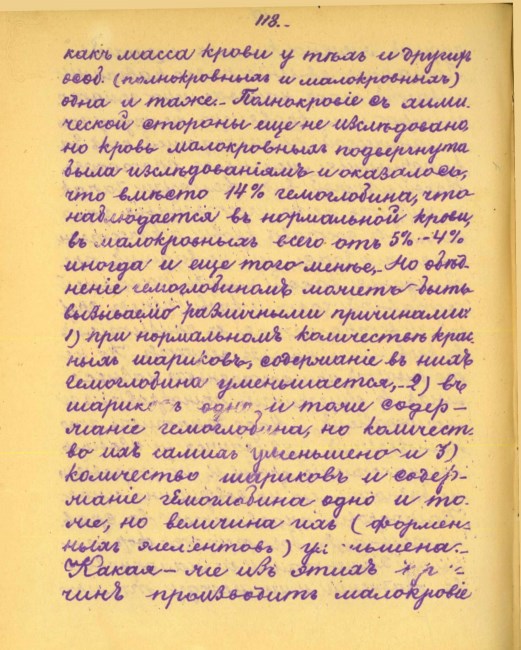 118.-
какъ масса крови у тѣхъ и другихъ
особ. (полнокровныхъ и малокровныхъ)
одна и таже.- Полнокровіе съ хими-
ческой стороны еще не изслѣдовано,
но кровь малокровныхъ подвергнута
была изслѣдованіямъ и оказалось,
что вмѣсто 14% гемоглобина, что
наблюдается въ нормальной крови,
въ малокровныхъ всего отъ 5%-4%
иногда и еще того менѣе,- Но обѣд-
неніе гемоглобиномъ можетъ быть
вызываемо различными причинами:
1) при нормальномъ количествѣ крас-
ныхъ шариковъ, содержаніе въ нихъ
гемоглобина уменьшается,-2) въ
одно и тоже содер-
жаніе гемоглобина, но количест-
во ихъ самихъ уменьшено и 3)
количество шариковъ и содер-
жаніе гемоглобина одно и то-
же, но величина ихъ (формен-
ныхъ элементовъ)
Какая-же изъ этихъ
чинъ производитъ малокровіе